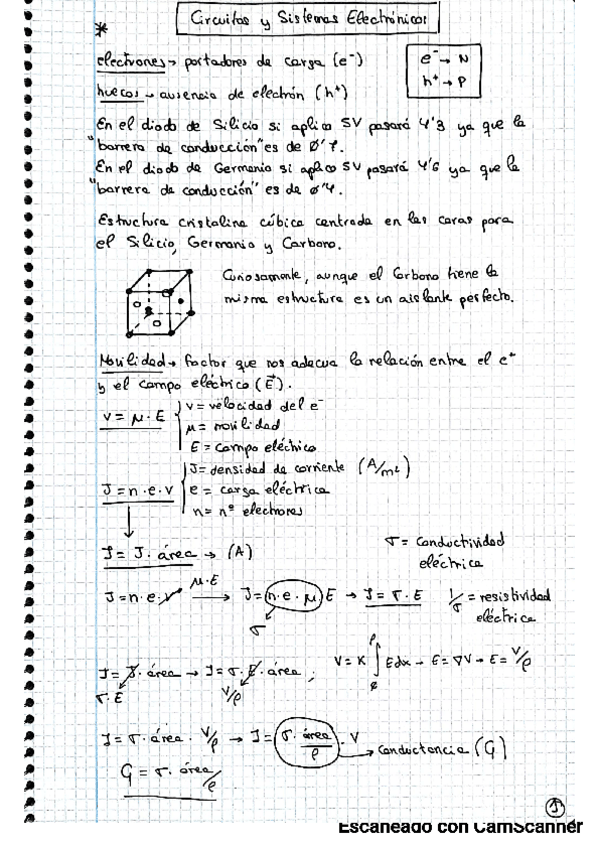 Circuitos y Sistemas Electrónicos
*
electrones → portadores de carga (e⁻)
e⁻ → N
h⁺ → P
huecos → ausencia de electrón (h⁺)
En el diodo de Silicio si aplico 5V pasará 4'3 ya que la
"barrera de conducción" es de 0'7.
En el diodo de Germanio si aplico 5V pasará 4'6 ya que la
"barrera de conducción" es de 0'4.
Estructura cristalina cúbica centrada en las caras para
el Silicio, Germanio y Carbono.
Curiosamente, aunque el Carbono tiene la
misma estructura es un aislante perfecto.
Movilidad → factor que nos adecua la relación entre el e⁺
y el campo eléctrico (E⃗).
v = μ · E
v = velocidad del e⁻
μ = movilidad
E = campo eléctrico
J = n · e · v
J = densidad de corriente (A/m²)
e = carga eléctrica
n = nº electrones
I = J · área → (A)
σ = Conductividad
eléctrica
J = n · e · v
μ · E
→ J = (n · e · μ) E → J = σ · E
σ
1/σ = resistividad
eléctrica
I = J · área → I = σ · E · área ;
σ · E
V/ℓ
V = K ∫ E dx → E = ∇V → E = V/ℓ
I = σ · área · V/ℓ → I = (σ · área/ℓ) · V
→ Conductancia (G)
G = σ · área/ℓ
1
Escaneado con CamScanner